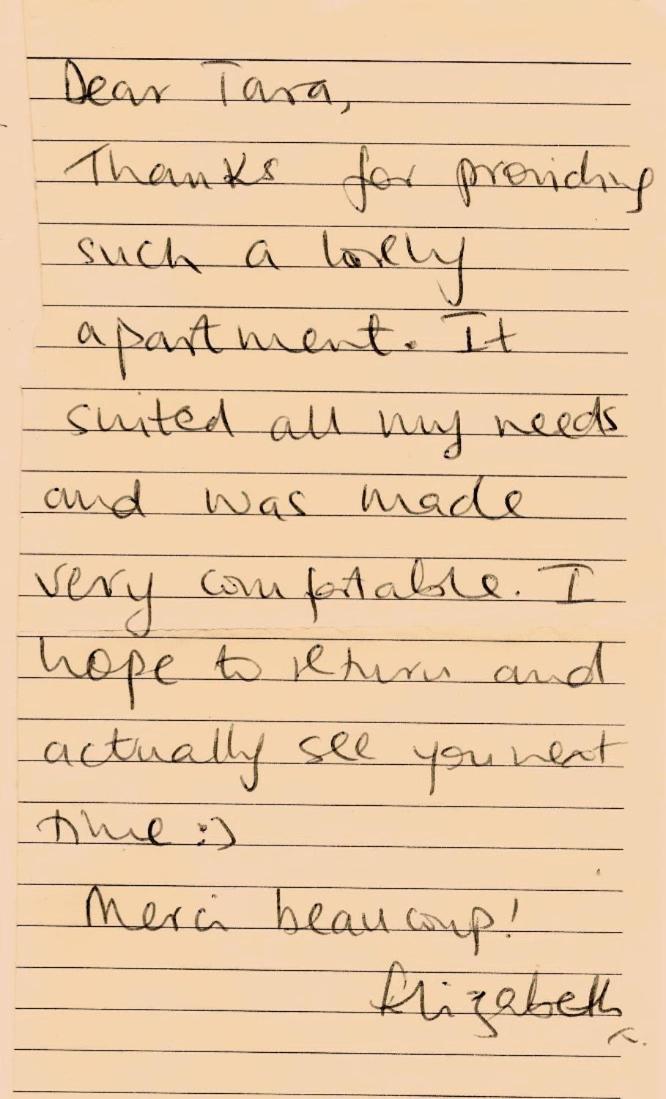 Dear Tara,
Thanks for providing
such a lovely
apartment. It
suited all my needs
and was made
very comfortable. I
hope to return and
actually see you next
time :)
Merci beaucoup!
Elizabeth